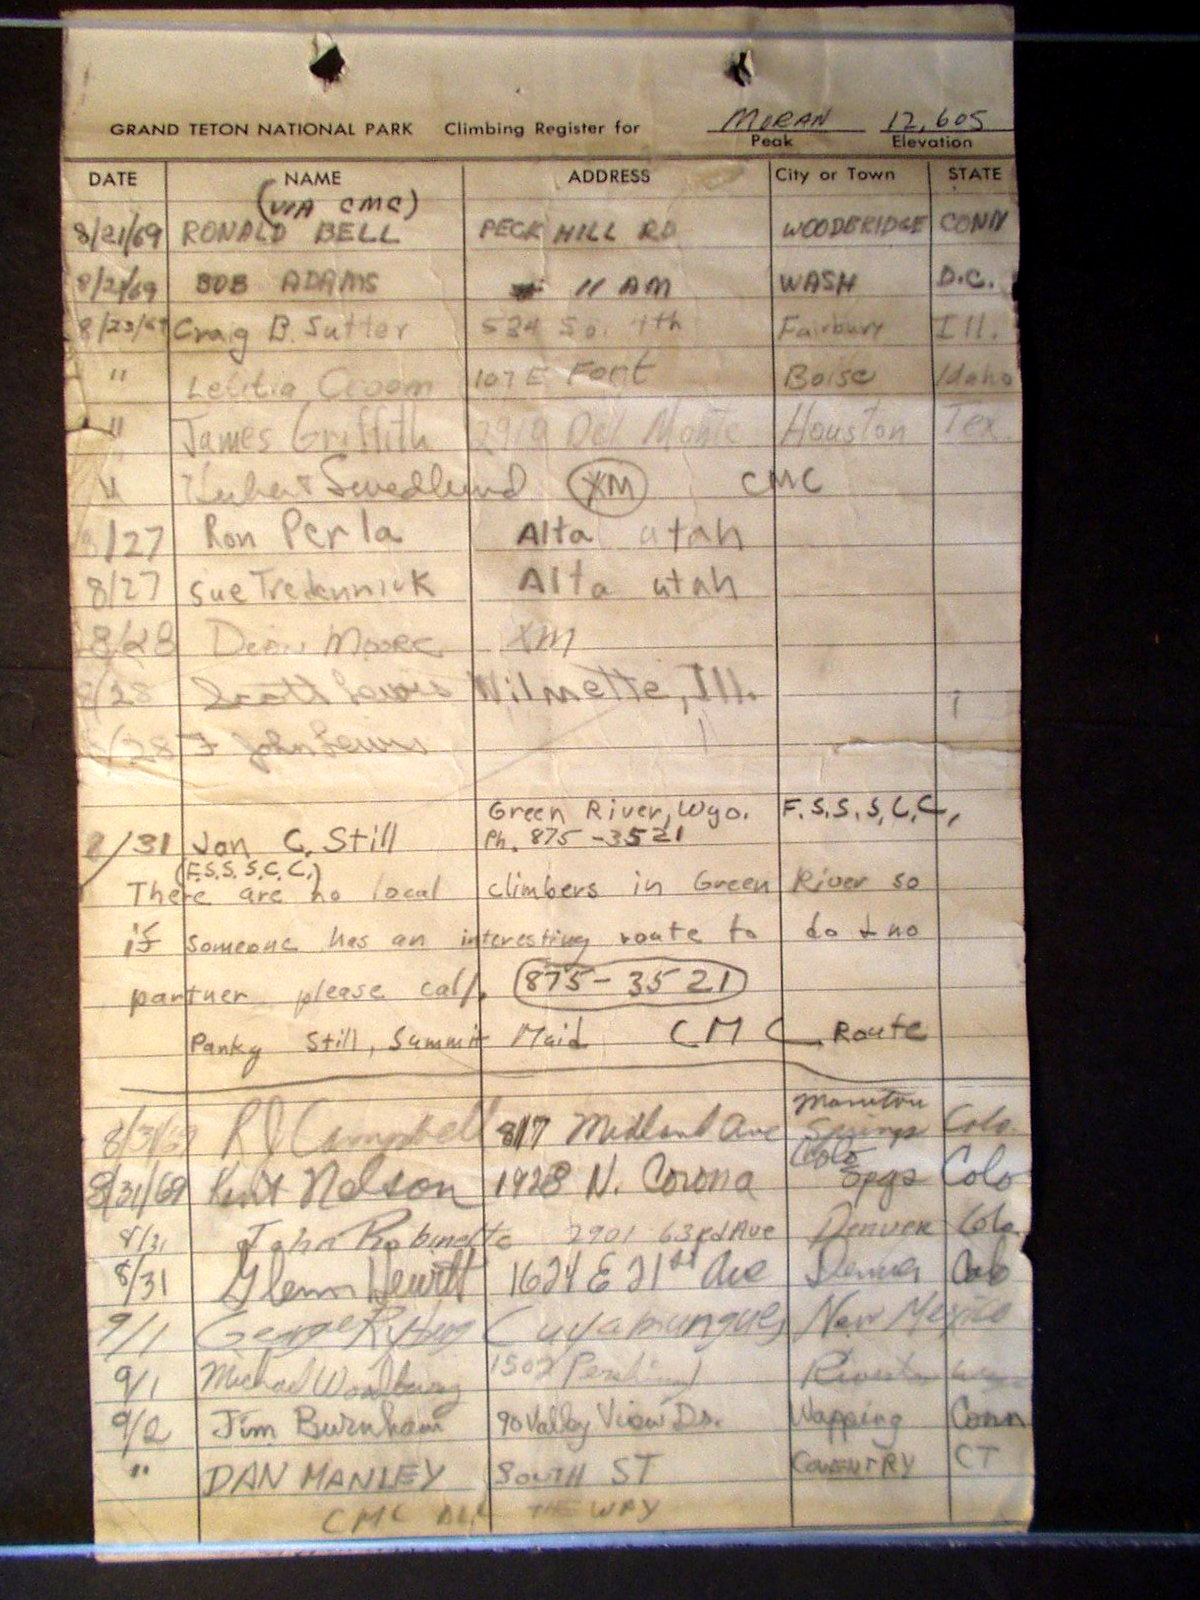 GRAND TETON NATIONAL PARK Climbing Register for MORAN 12,605
Peak Elevation
DATE NAME ADDRESS City or Town STATE
(VIA CMC)
8/21/69 RONALD BELL PECK HILL RD WOODBRIDGE CONN
8/21/69 BOB ADAMS 11 AM WASH D.C.
8/23/69 Craig B. Sutter 534 So. 4th Fairbury Ill.
" Letitia Croom 107 E Fort Boise Idaho
" James Griffith 2919 Del Monte Houston Tex.
" Swedlund XM CMC
8/27 Ron Perla Alta utah
8/27 Sue Tredennick Alta utah
8/28 Moore XM
8/28 Scott Lewis Wilmette, Ill.
8/28 F John Lewis
Green River, Wyo. F.S.S.S.C.C.,
8/31 Jon C. Still Ph. 875-3521
(F.S.S.S.C.C.)
There are no local climbers in Green River so
if someone has an interesting route to do & no
partner please call. 875-3521
Panky Still, Summit Maid CMC Route
Manitou
8/31/69 R Campbell 817 Midland Ave Springs Colo.
Colo
8/31/69 Kent Nelson 1928 N. Corona Spgs Colo
8/31 John Robinette 2901 63rd Ave Denver Colo.
8/31 Glenn Hewitt 1624 E 21st Ave Denver Colo
9/1 George Cuyamungue, New Mexico
9/1 Michael 1502
9/2 Jim Burnham 90 Valley View Dr. Wapping Conn
" DAN MANLEY SOUTH ST COVENTRY CT
CMC ALL THE WAY